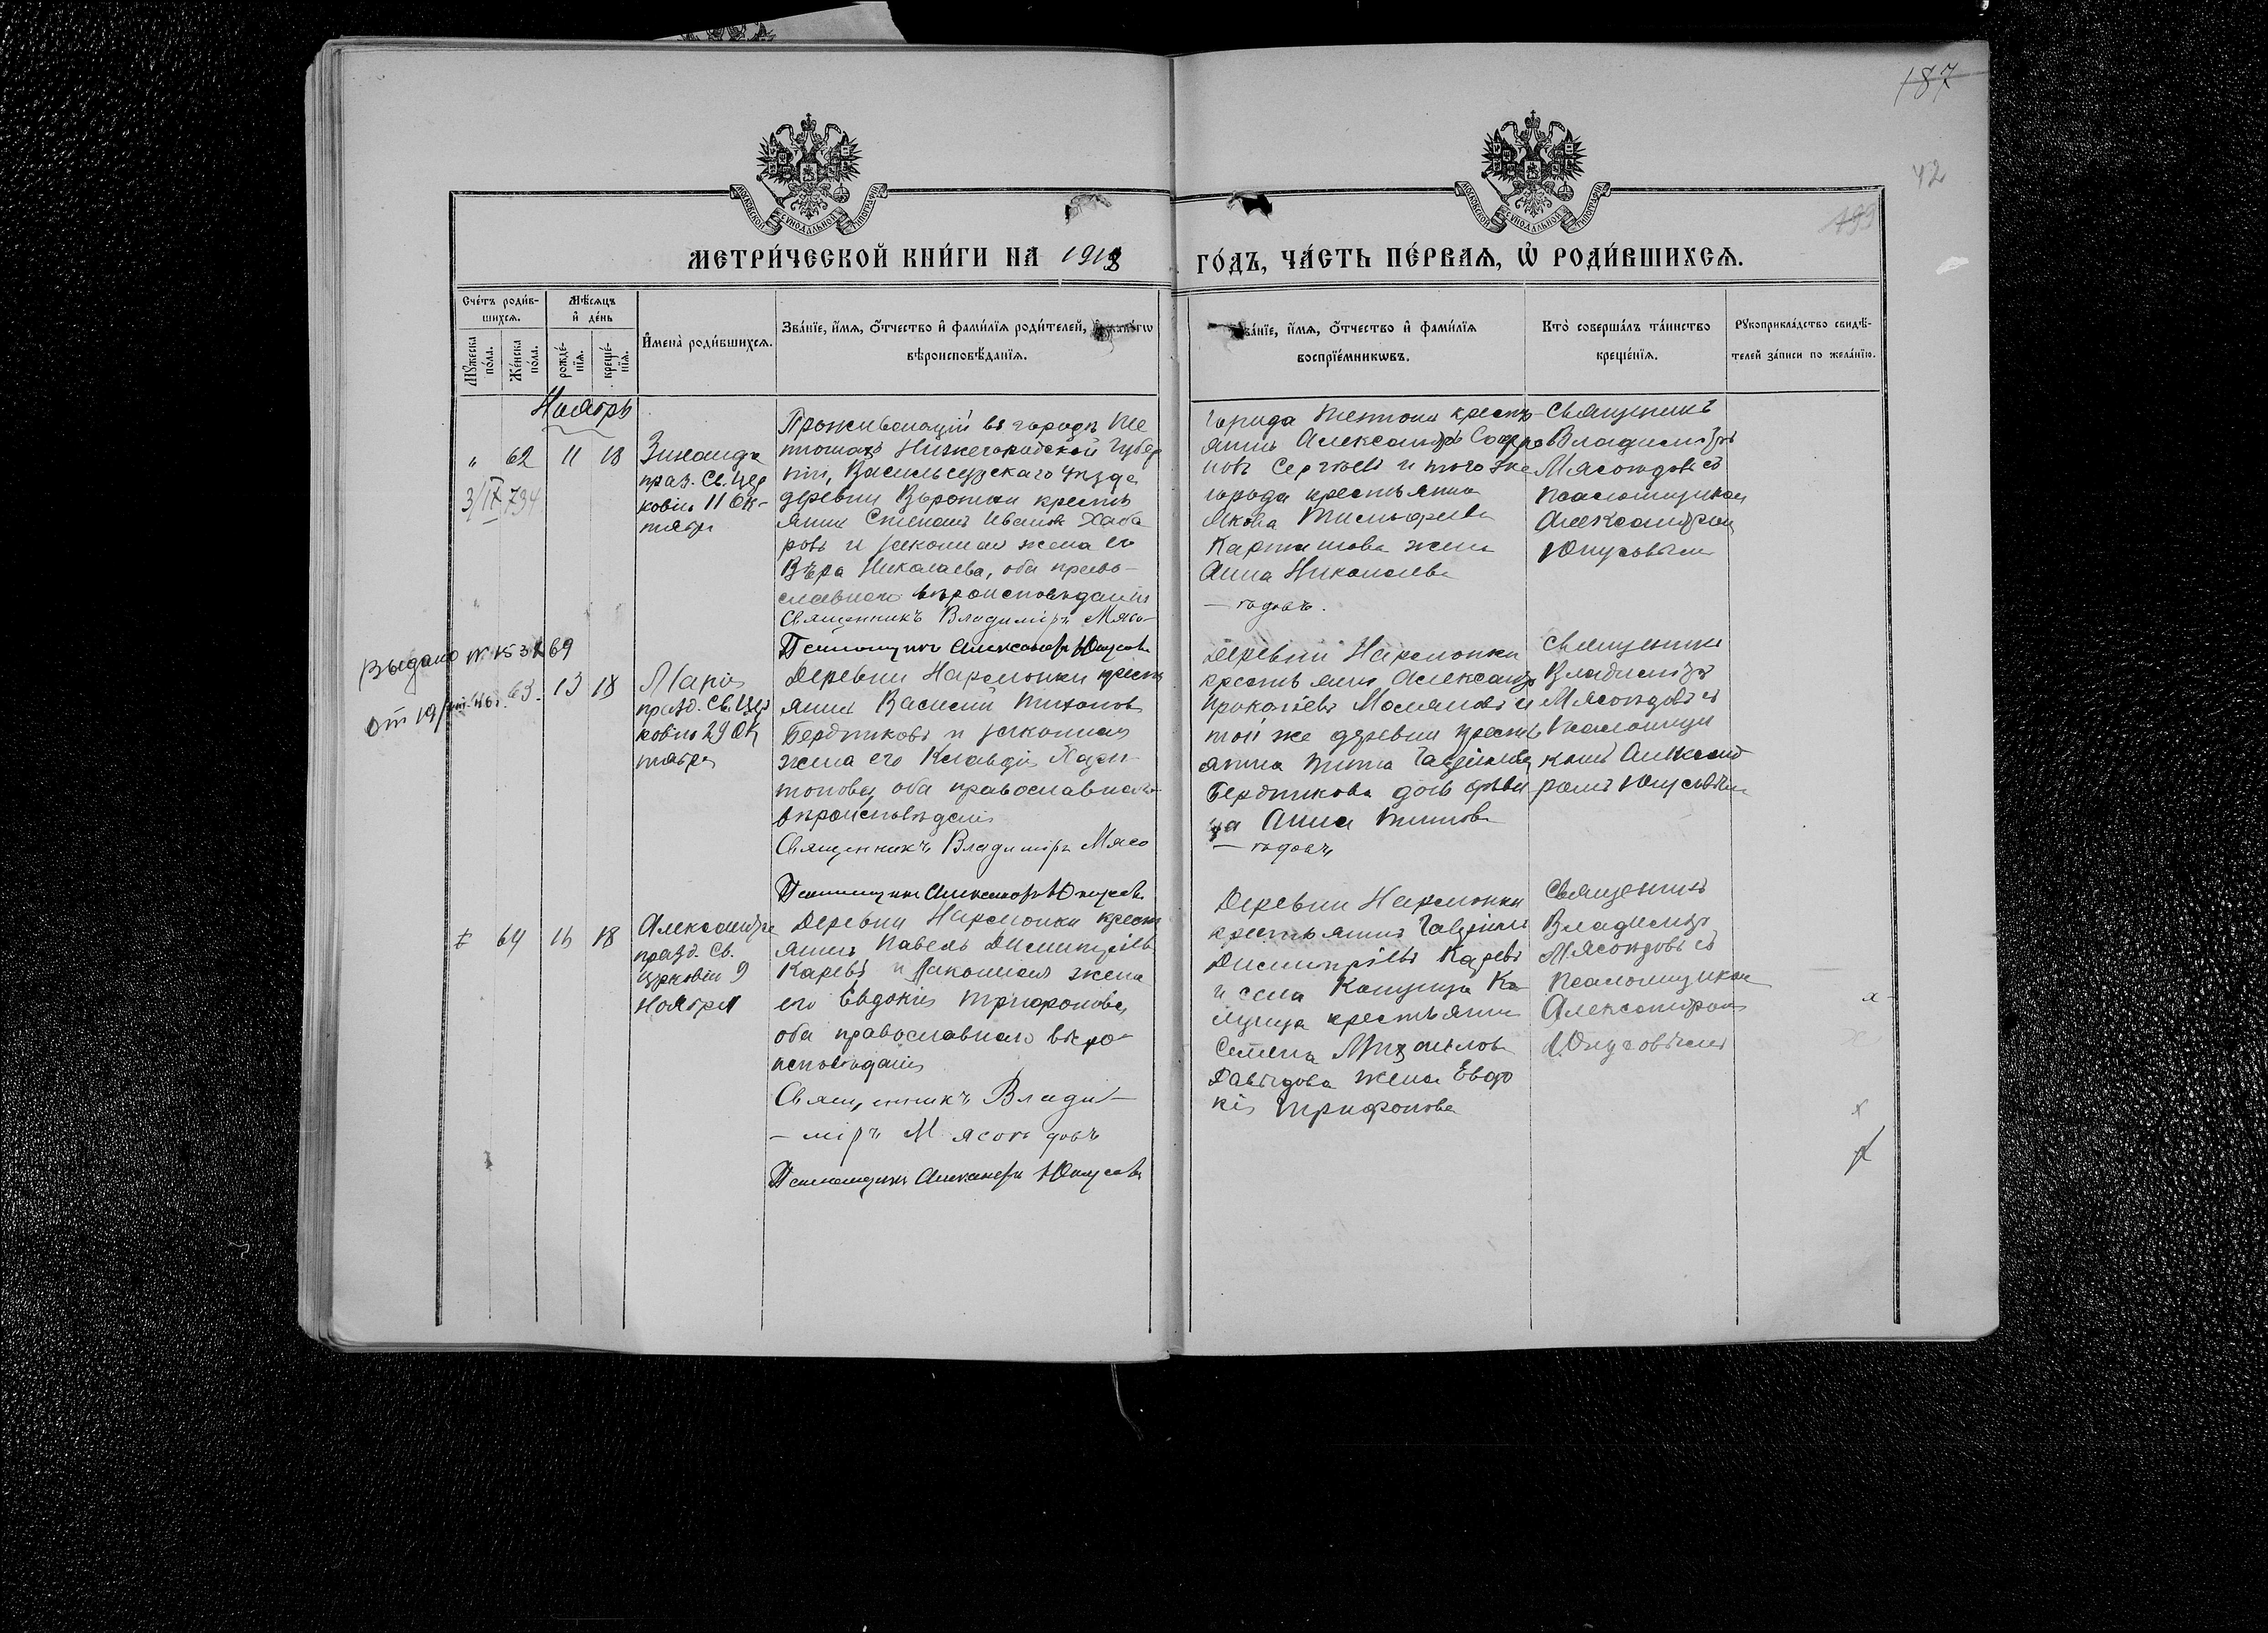 187
42
199
МОСКОВСКОЙ СѴНОДАЛЬНОЙ ТИПОГРАФІИ
МОСКОВСКОЙ СѴНОДАЛЬНОЙ ТИПОГРАФІИ
МЕТРИ́ЧЕСКОЙ КНИ́ГИ НА 1918
ГО́ДЪ, ЧА́СТЬ ПЕ́РВАЯ, Ѡ҆ РОДИ́ВШИХСЯ.
Сче́тъ роди́в-
шихся.
Мѣ́сяцъ
и҆ де́нь
Мꙋ́жеска
по́ла.
Же́нска
по́ла.
рожде́-
нїѧ.
креще́-
нїѧ.
И҆мена̀ роди́вшихся.
Зва́нїе, и҆́мя, ѻ҆́тчество и҆ фами́лїя роди́телей,
вѣроисповѣ́данїя.
ва́нїе, и҆́мя, ѻ҆́тчество и҆ фами́лїя
воспрїе́мникωвъ.
Кто̀ соверша́лъ та́инство
креще́нїя.
Рꙋкоприкла́дство свидѣ́-
телей за́писи по жела́нїю.
Ноябрь
" 62 11 18
3/IX 734
Зинаида
праз. Св. Цер
ковiю 11 Ок-
тября
Проживающiй въ городѣ Те
тюшахъ Нижегородской Губер
нiи, Васильсурскаго уѣзда
деревни кресть
янинъ Степанъ Ивановъ Хаба
ровъ и законная жена его
Вѣра Николаева, оба право-
славнаго вѣроисповѣданiя
Священникъ Владимiръ Мясо-
Псаломщикъ Александръ Юнусовъ
города Тетюшъ кресть
янинъ Александръ
новъ Сергѣевъ и того же
города крестьянина
Якова
жена
Анна Николаева
— годовъ.
Священникъ
Владимiръ
Мясоѣдовъ съ
псаломщикомъ
Александромъ
Юнусовымъ
Выдано № 153 69
от 19/
63. 13 18
Марiя
празд. Св. Цер
ковiю 29 Ок
тября
Деревни Нармонки кресть
янинъ Василiй Тихоновъ
Бердниковъ и законная
жена его Клавдiя Хари-
тонова, оба православнаго
вѣроисповѣданiя
Священникъ Владимiръ Мясо
Псаломщикъ Александръ Юнусовъ
Деревни Нармонки
крестьянинъ Александръ
Прокопiевъ и
той же деревни кресть
янина Тита
Бердникова дочь дѣви
ца Анна Титова
— годовъ
Священникъ
Владимiръ
Мясоѣдовъ съ
псаломщи
комъ Александ
ромъ Юнусовымъ
64 15 18
Александра
празд. Св.
Церковiю 9
Ноября
Деревни Нармонки кресть
янинъ Павелъ Димитрiевъ
Каревъ и законная жена
его Евдокiя Трифонова,
оба православнаго вѣро-
исповѣданiя
Священникъ Влади-
— мiръ Мясоѣдовъ
Псаломщикъ Александръ Юнусовъ
Деревни Нармонки
крестьянинъ Гаврiилъ
Димитрiевъ Каревъ
и села
крестьянина
Семена Михаилова
Давыдова жена Евдо
кiя Трифонова
Священникъ
Владимiръ
Мясоѣдовъ съ
псаломщикомъ
Александромъ
Юнусовымъ